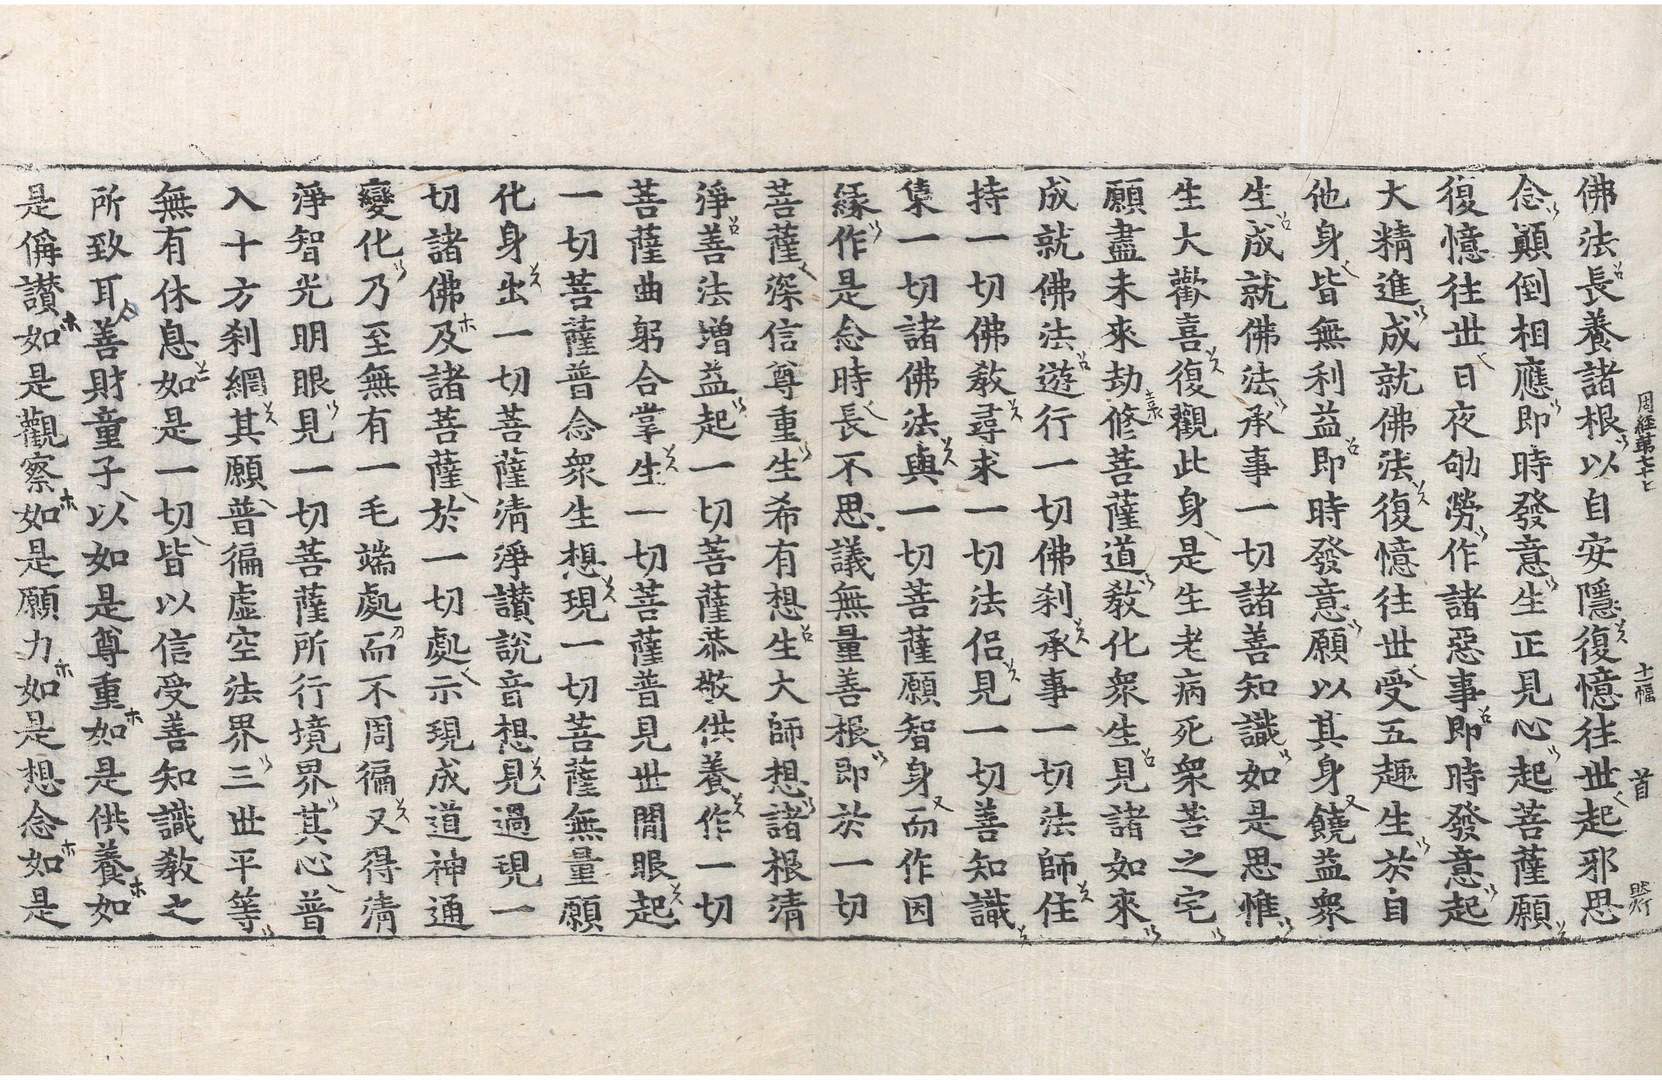 周經第七十七 十一幅 首
佛法長養諸根以自安隱復憶往世起邪思
念顚倒相應即時發意生正見心起菩薩願
復憶往世日夜劬勞作諸惡事即時發意起
大精進成就佛法復憶往世受五趣生於自
他身皆無利益即時發意願以其身饒益衆
生成就佛法承事一切諸善知識如是思惟
生大歡喜復觀此身是生老病死衆苦之宅
願盡未來劫修菩薩道敎化衆生見諸如來
成就佛法遊行一切佛刹承事一切法師住
持一切佛敎尋求一切法侶見一切善知識
集一切諸佛法與一切菩薩願智身而作因
緣作是念時長不思議無量善根即於一切
菩薩深信尊重生希有想生大師想諸根清
淨善法增益起一切菩薩恭敬供養作一切
菩薩曲躬合掌生一切菩薩普見世閒眼起
一切菩薩普念衆生想現一切菩薩無量願
化身出一切菩薩清淨讃說音想見過現一
切諸佛及諸菩薩於一切處示現成道神通
變化乃至無有一毛端處而不周徧又得清
淨智光明眼見一切菩薩所行境界其心普
入十方刹網其願普徧虛空法界三世平等
無有休息如是一切皆以信受善知識敎之
所致耳善財童子以如是尊重如是供養如
是稱讃如是觀察如是願力如是想念如是